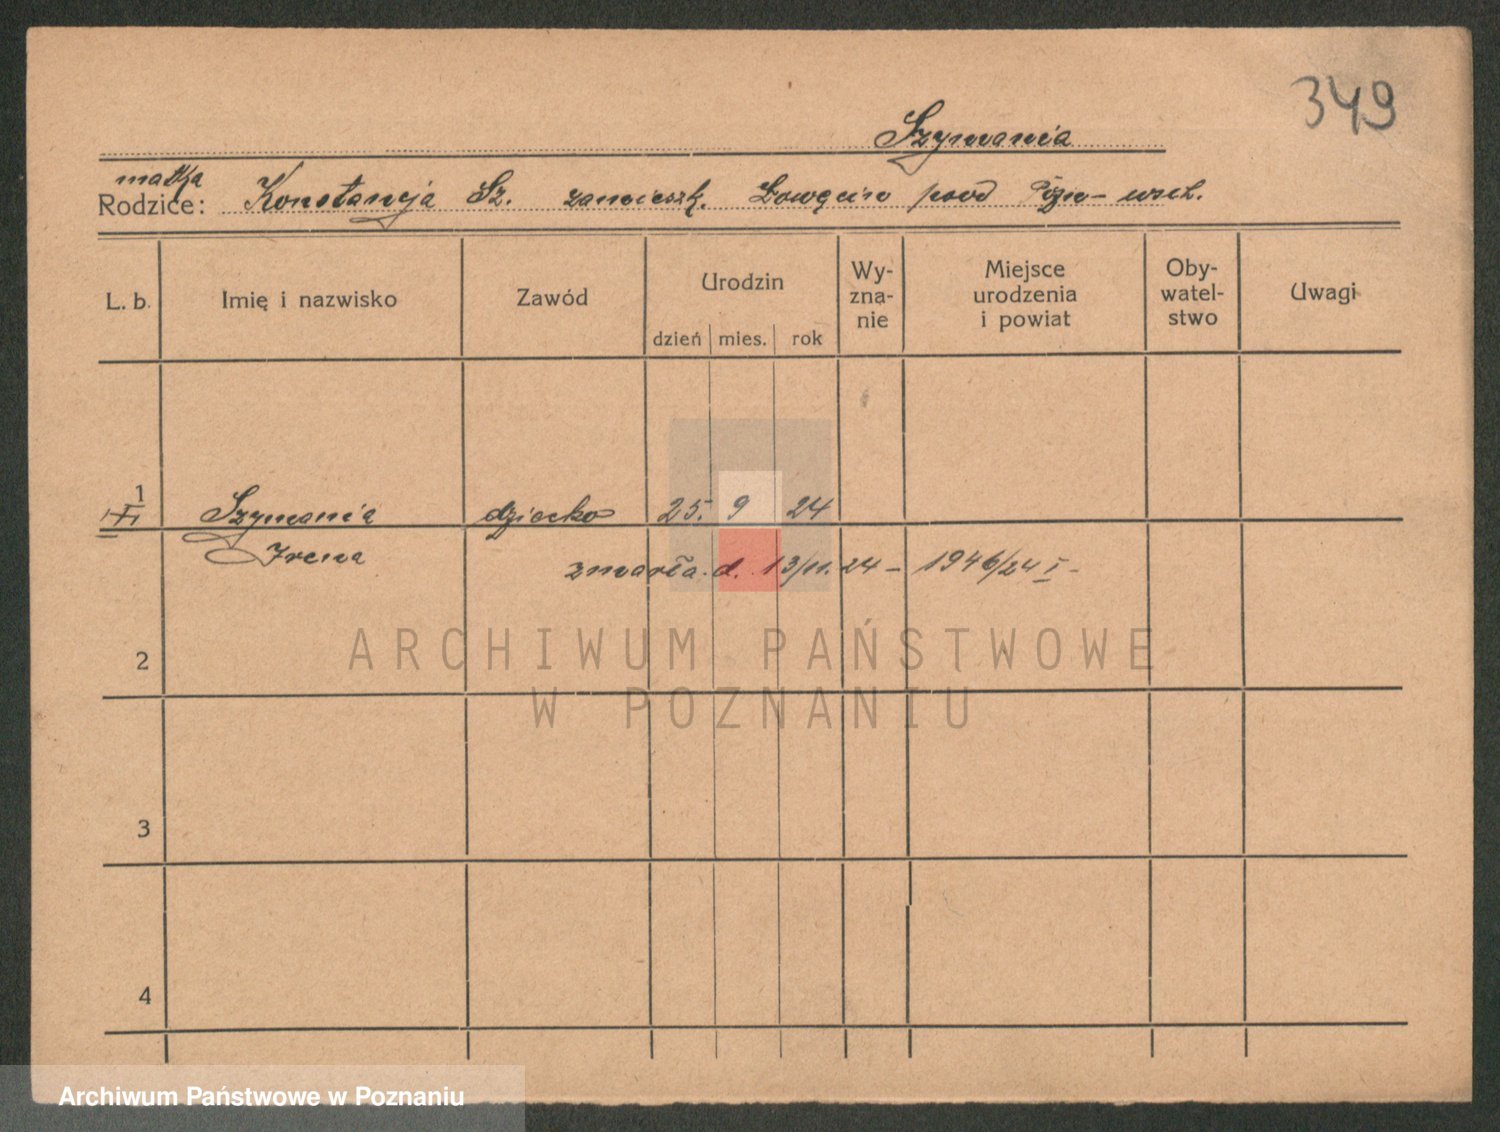 349
Szymania
matka
Rodzice: Konstancja Sz. zamieszk. Łowęcin pow Pozn- wsch.
L. b. Imię i nazwisko Zawód Urodzin Wy-zna-nie Miejsce urodzenia i powiat Oby-watel-stwo Uwagi
dzień mies. rok
1
Szymania dziecko 25. 9 24
Irena
zmarła. d. 13/11. 24 - 1946/24 I -
2
ARCHIWUM PAŃSTWOWE
W POZNANIU
3
4
Archiwum Państwowe w Poznaniu